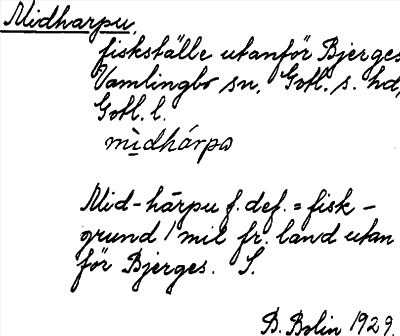 Midharpu,
fiskställe utanför Bjerges
Vamlingbo sn, Gotl. s. hd,
Gotl. l.
midhárpo
Mid-härpu f. def. = fisk-
grund 1 mil fr. land utan
för Bjerges. S.
B. Bolin 1929.